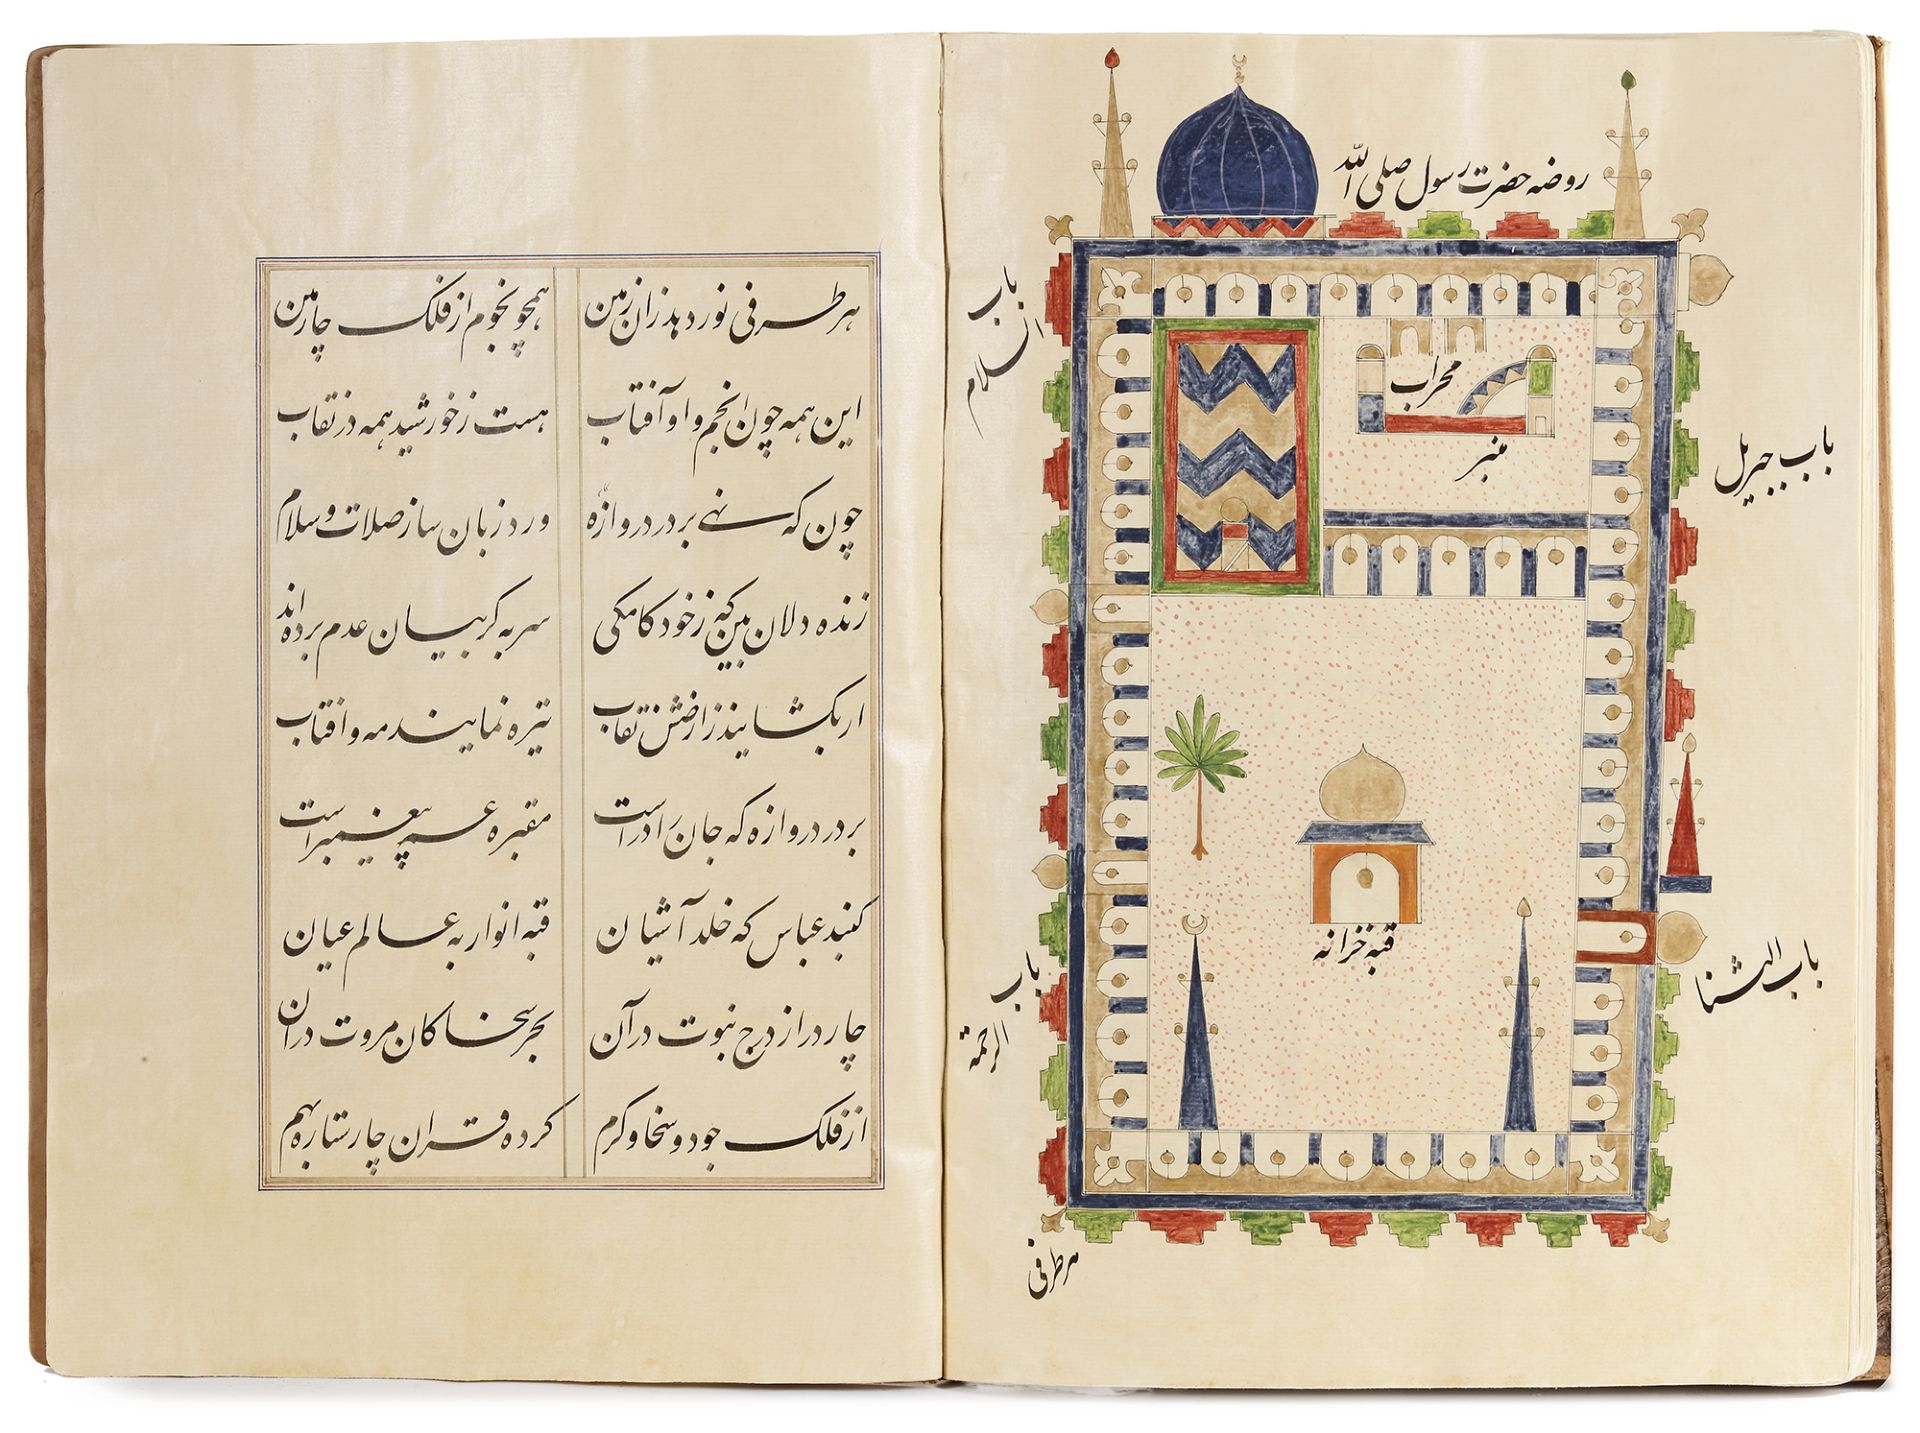 روضه حضرت رسول صلی الله
باب السلام
محراب
منبر
باب جبریل
قبه خزانه
باب الرحمة
باب النسا
هر طرفی
هر طرفی نور دهد زان زمین همچو نجوم از فلک چارمین
این همه چون انجم و او آفتاب هست ز خورشید همه در نقاب
چون که نهی بر در دروازه ورد زبان ساز صلات و سلام
زنده دلان بین که ز خود کامکی سر به گریبان عدم برده‌اند
ار بکشایند ز ارضش نقاب تیره نمایند مه و افتاب
بر در دروازه که جان را در است مقبره عم پیغمبر است
کنبد عباس که خلد آشیان قبه انوار به عالم عیان
چار در از درج نبوت در آن بحر سخا کان مروت در ان
از فلک جود و سخا و کرم کرده قران چار ستاره بهم